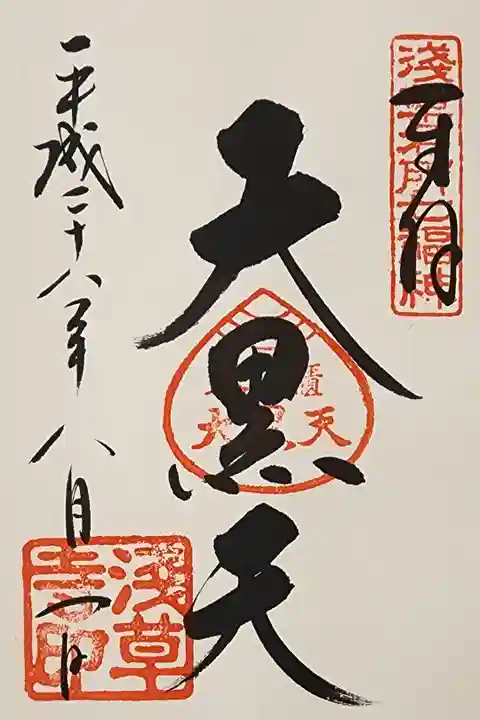 奉拝
淺草名所七福神
大黒天
平成二十八年
八月一日
浅草
寺印